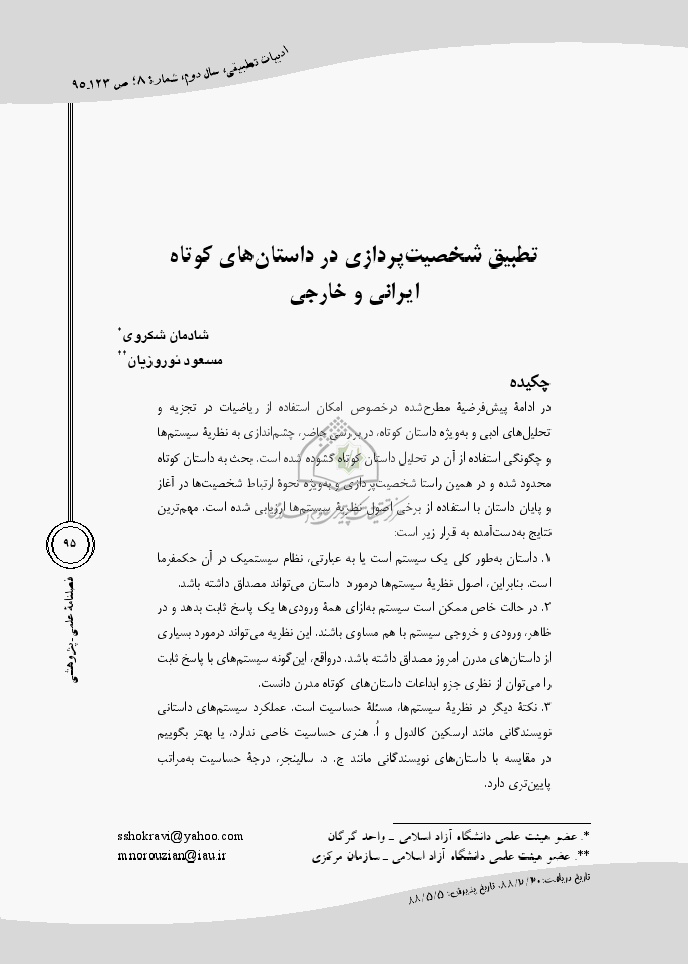 ادبیات تطبیقی، سال دوم، شمارهٔ ۸؛ ص ۱۲۳ـ۹۵
تطبیق شخصیت‌پردازی در داستان‌های کوتاه
ایرانی و خارجی
شادمان شکروی*
مسعود نوروزیان**
چکیده
در ادامهٔ پیش‌فرضیهٔ مطرح‌شده درخصوص امکان استفاده از ریاضیات در تجزیه و
تحلیل‌های ادبی و به‌ویژه داستان کوتاه، در بررسی حاضر، چشم‌اندازی به نظریهٔ سیستم‌ها
و چگونگی استفاده از آن در تحلیل داستان کوتاه گشوده شده است. بحث به داستان کوتاه
محدود شده و در همین راستا شخصیت‌پردازی و به‌ویژه نحوهٔ ارتباط شخصیت‌ها در آغاز
و پایان داستان با استفاده از برخی اصول نظریهٔ سیستم‌ها ارزیابی شده است. مهم‌ترین
نتایج به‌دست‌آمده به قرار زیر است:
۱. داستان به‌طور کلی یک سیستم است یا به عبارتی، نظام سیستمیک در آن حکمفرما
است. بنابراین، اصول نظریهٔ سیستم‌ها درمورد داستان می‌تواند مصداق داشته باشد.
۲. در حالت خاص ممکن است سیستم به‌ازای همهٔ ورودی‌ها یک پاسخ ثابت بدهد و در
ظاهر، ورودی و خروجی سیستم با هم مساوی باشند. این نظریه می‌تواند درمورد بسیاری
از داستان‌های مدرن امروز مصداق داشته باشد. درواقع، این‌گونه سیستم‌های با پاسخ ثابت
را می‌توان از نظری جزو ابداعات داستان‌های کوتاه مدرن دانست.
۳. نکتهٔ دیگر در نظریهٔ سیستم‌ها، مسئلهٔ حساسیت است. عملکرد سیستم‌های داستانی
نویسندگانی مانند ارسکین کالدول و اُ. هنری حساسیت خاصی ندارد، یا بهتر بگوییم
در مقایسه با داستان‌های نویسندگانی مانند ج. د. سالینجر، درجهٔ حساسیت به‌مراتب
پایین‌تری دارد.
۹۵
فصلنامهٔ علمی ـ پژوهشی
*. عضو هیئت علمی دانشگاه آزاد اسلامی ـ واحد گرگان sshokravi@yahoo.com
**. عضو هیئت علمی دانشگاه آزاد اسلامی ـ سازمان مرکزی mnorouzian@iau.ir
تاریخ دریافت: ۸۸/۲/۲۰، تاریخ پذیرش: ۸۸/۵/۵